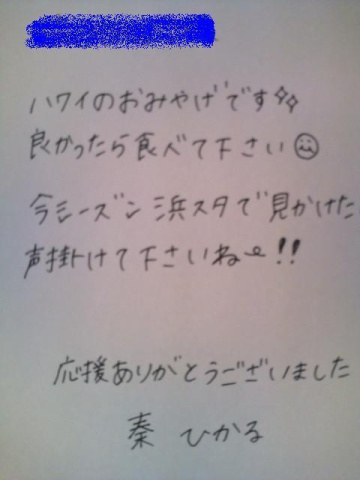 ハワイのおみやげです
良かったら食べて下さい
今シーズン浜スタで見かけた
声掛けて下さいね〜!!
応援ありがとうございました
秦 ひかる